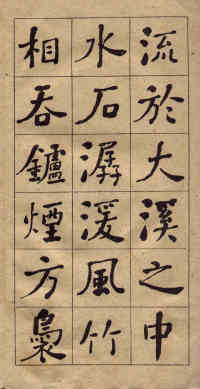 流於大溪之中
水石潺湲風竹
相吞鑪煙方裊